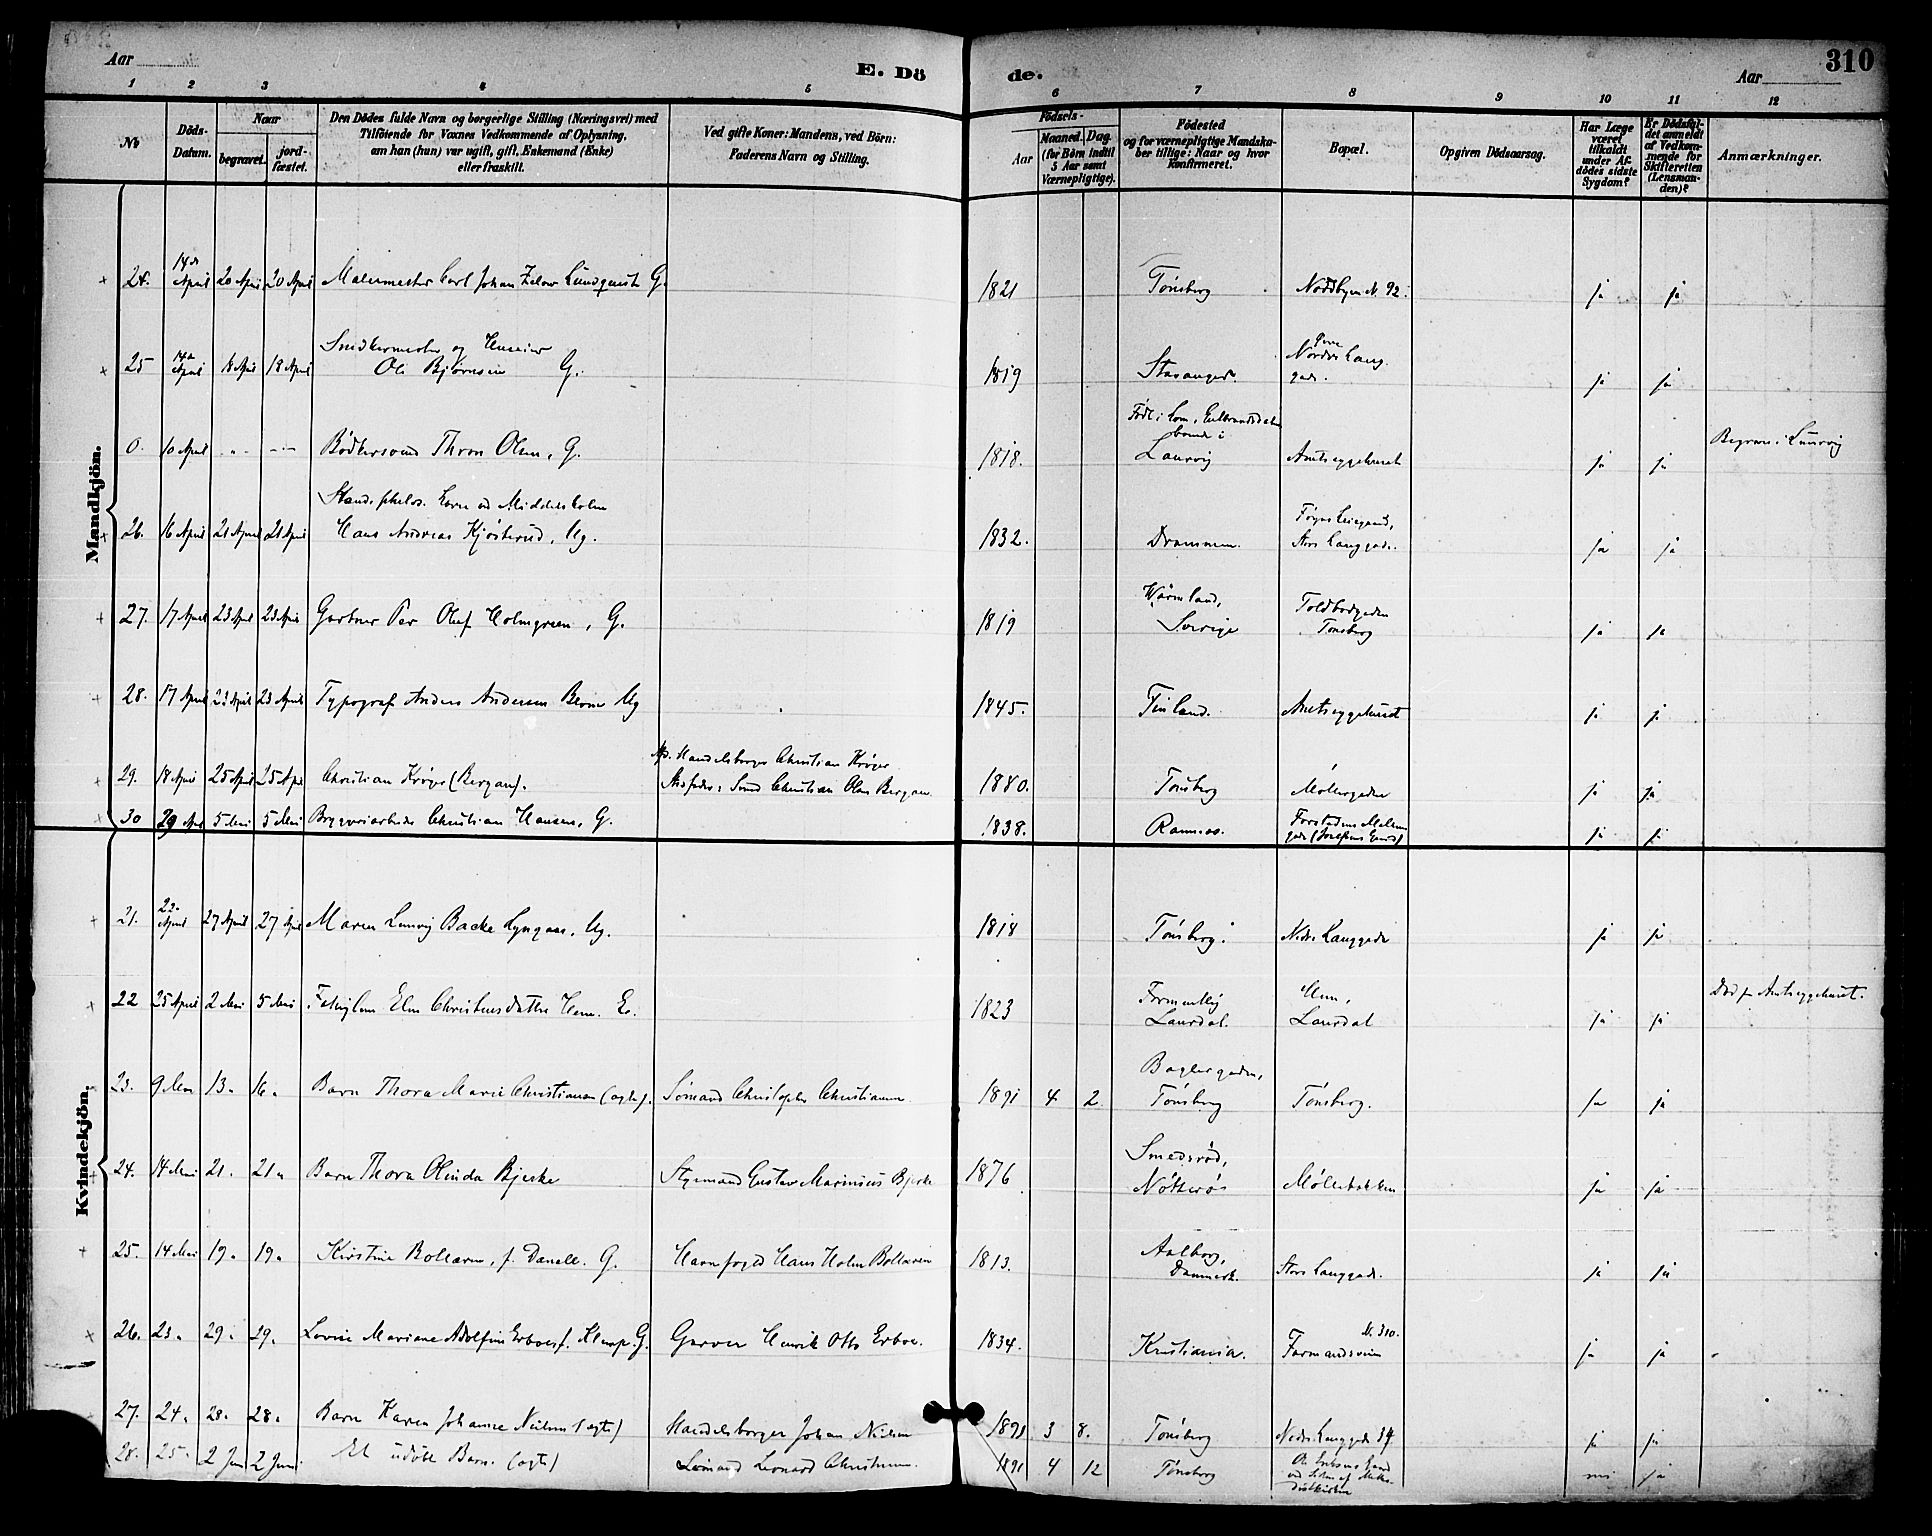 Aar
E. Dö
de.
Aar
310
1 2 3 4 5 6 7 8 9 10 11 12
No
Döds-
Datum.
Naar
begravet.
jord-
fæstet.
Den Dödes fulde Navn og borgerlige Stilling (Næringsvei) med
Tilföiende for Voxnes Vedkommende af Oplysning,
om han (hun) var ugift, gift, Enkemand (Enke)
eller fraskilt.
Ved gifte Koner: Mandens, ved Börn:
Faderens Navn og Stilling.
Födsels-
Aar
Maaned. Dag.
(for Börn indtil
5 Aar samt
Værnepligtige).
Födested
og for værnepligtige Mandska-
ber tillige: Naar og hvor
konfirmeret.
Bopæl.
Opgiven Dödsaarsag.
Har Læge
været
tilkaldt
under Af-
dödes sidste
Sygdom?
Er Dödsfal-
det anmeldt
af Vedkom-
mende for
Skifteretten
(Lensman-
den)?
Anmærkninger.
Mandkjön.
24. 14de April 20 April 20 April Malermester Carl Johan Lundquist G. 1821 Tönsberg Nordbyen N. 92. ja ja
25 14de April 18 April 18 April Snedkermester og
Ole Björnsen G. 1819 Stavanger. Nordre Lang-
gade. ja ja
0. 10 April Bödkersvend Thron Olsen, G. 1818. Födt i Lom, Gulbrandsdalen
Laurvig Amtssygehuset ja ja Begrav. i Laurvig
26. 16 April 21 April 21 April
Hans Andreas Kjösterud, Ug. 1832. Drammen. Store Langgade. ja ja
27. 17 April 23 April 23 April Gartner Per Oluf Holmgreen, G. 1819 Wärmland,
Sverige Toldbodgaden
Tönsberg ja ja
28. 17 April 23 April 23 April Typograf Anders Andersen Ug 1845. Finland. Amtssygehuset ja ja
29. 18 April 25 April 25 April Christian Kröger (Bergan). Handelsborger Christian Kröger
Christian Olsen Bergan 1880. Tönsberg Möllergaden ja ja
30 29 Apr 5 Mai 5 Mai Bryggeriarbeider Christian Hansen, G. 1838. Ramnes. ja ja
Kvindekjön.
21. 22. April 27 April 27 April Maren Backe Lyngaas, Ug. 1818 Tönsberg. Nedre Langgade ja ja
22 25 April 2 Mai 5 Mai Elen Christensdatter E. 1823
Laurdal. Laurdal ja ja Död på Amtssygehuset.
23. 9 Mai 13. 16. Barn Thora Marie Christiansen (ægte). Sömand Christopher Christiansen 1891 4 2 Baglergaden,
Tönsberg Tönsberg. ja ja
24. 14 Mai 21. 21. Barn Thora Olinda Bjerke Styrmand Gustav Marinius Bjerke 1876 Smedsröd,
Nötterö Möllebakken ja ja
25. 14 Mai 19. 19. Kirstine Bollæren, f. G. Havnefoged Hans Holm Bollæren 1813. Aalborg,
Danmark. Store Langgade. ja ja
26. 23. 29. 29. Lovise Mariane Adolfine Erboe f. G. Garver Henrik Otto Erboe. 1834. Kristiania. N. 310.
Farmandsveien ja ja
27. 24. 28. 28. Barn Karen Johanne Nielsen (ægte) Handelsborger Johan Nielsen 1891 3 8. Tönsberg Nedre Langgade 34 ja ja
28. 25. 2 Juni 2 Juni Et udöbt Barn. (ægte) Sömand Leonard Christensen. 1891 4 12 Tönsberg nei ja